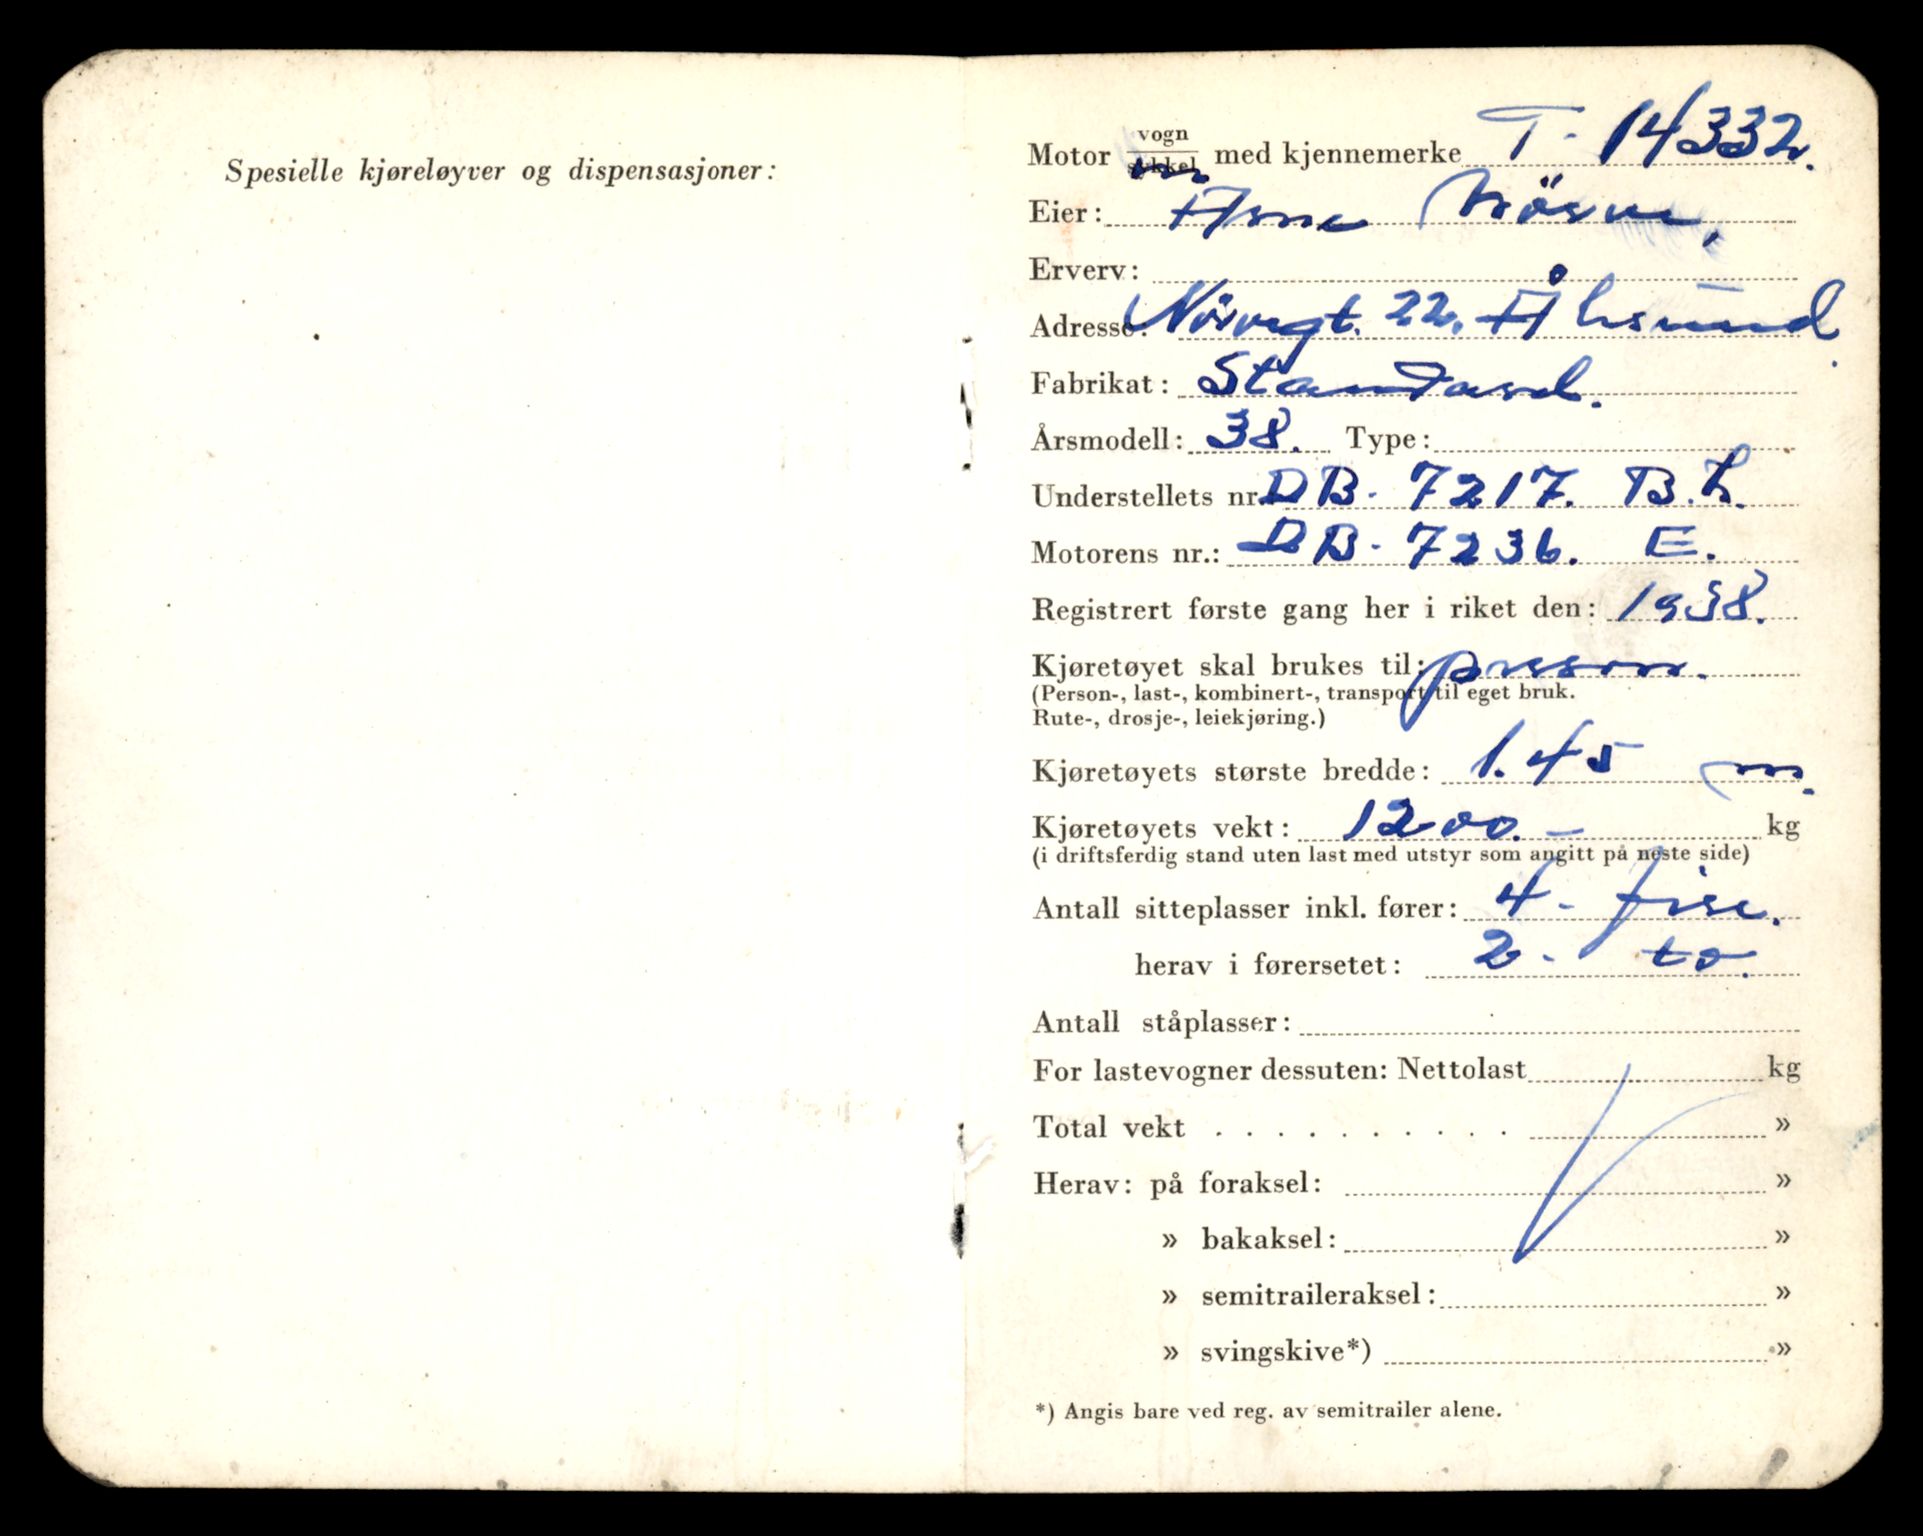 Spesielle kjøreløyver og dispensasjoner:
Motor vogn/sykkel med kjennemerke T- 14332.
Eier: Arne Nörve,
Erverv:
Adresse: Nörvegt. 22. Ålesund
Fabrikat: Standard.
Årsmodell: 38. Type:
Understellets nr. DB- 7217. B.L.
Motorens nr.: DB- 7236. E.
Registrert første gang her i riket den: 1938.
Kjøretøyet skal brukes til: person.
(Person-, last-, kombinert-, transport til eget bruk.
Rute-, drosje-, leiekjøring.)
Kjøretøyets største bredde: 1.45 m.
Kjøretøyets vekt: 1200.- kg
(i driftsferdig stand uten last med utstyr som angitt på neste side)
Antall sitteplasser inkl. fører: 4- fire.
herav i førersetet: 2- to.
Antall ståplasser:
For lastevogner dessuten: Nettolast kg
Total vekt . . . . . . . . . . »
Herav: på foraksel: »
» bakaksel: »
» semitraileraksel: »
» svingskive*) »
*) Angis bare ved reg. av semitrailer alene.